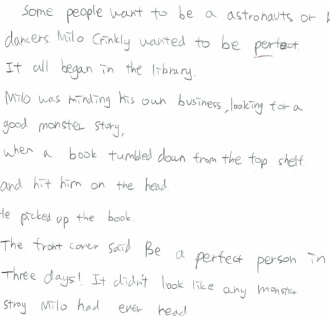 Some people want to be a astronauts or
dancers. Milo Crinkly wanted to be perfect
It all began in the library.
Milo was minding his own business, looking for a
good monster story,
when a book tumbled down from the top shelf
and hit him on the head.
He picked up the book.
The front cover said Be a perfect person in
Three days! It didn't look like any monster
stroy Milo had ever head